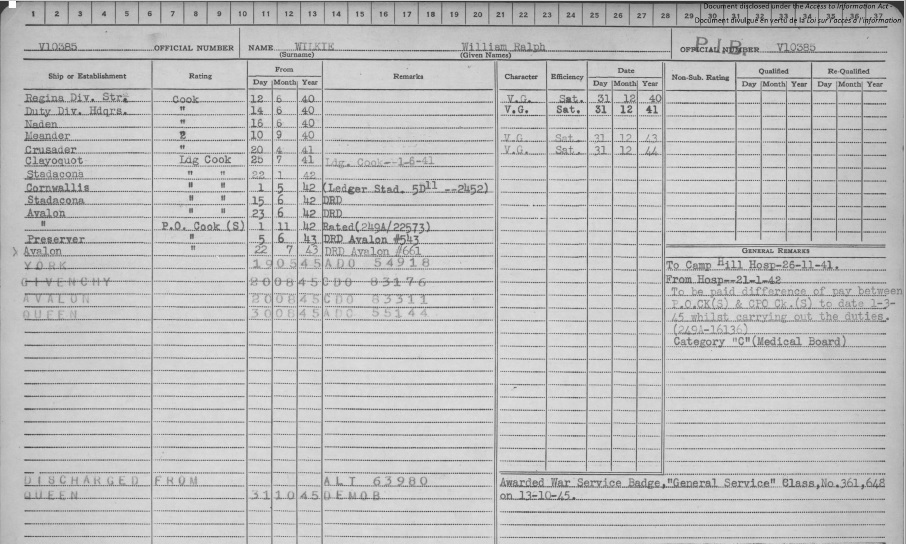 Document disclosed under the Access to Information Act -
Document divulgué en vertu de la Loi sur l'accès à l'information
1 2 3 4 5 6 7 8 9 10 11 12 13 14 15 16 17 18 19 20 21 22 23 24 25 26 27 28 29 30 31 32 33 34 35 36 37
V10385 OFFICIAL NUMBER NAME WILKIE William Ralph OFFICIAL NUMBER V10385
(Surname) (Given Names)
Ship or Establishment Rating From Remarks Character Efficiency Date Non-Sub. Rating Qualified Re-Qualified
Day Month Year Day Month Year Day Month Year Day Month Year
Regina Div. Str. Cook 12 6 40 V.G. Sat. 31 12 40
Duty Div. Hdqrs. " 14 6 40 V.G. Sat. 31 12 41
Naden " 16 6 40
Meander 10 9 40 V.G. Sat. 31 12 43
Crusader " 20 4 41 V.G. Sat. 31 12 44
Clayoquot Ldg Cook 25 7 41 Ldg. Cook--1-6-41
Stadacona " " 22 1 42
Cornwallis " " 1 5 42 (Ledger Stad. 5D11 --2452)
Stadacona " " 15 6 42 DRD
Avalon " " 23 6 42 DRD
" P.O. Cook (S) 1 11 42 Rated(249A/22573)
Preserver " 5 6 43 DRD Avalon #543
Avalon " 22 7 43 DRD Avalon #661
YORK 190545 ADO 54918
GIVENCHY 200845 CDO 83176
AVALON 200845 CDO 83311
QUEEN 300845 ADC 55144
GENERAL REMARKS
To Camp Hill Hosp-26-11-41.
From Hosp--21-1-42
To be paid difference of pay between
P.O.CK(S) & CPO Ck.(S) to date 1-3-
45 whilst carrying out the duties.
(249A-16136)
Category "C"(Medical Board)
DISCHARGED FROM ALT 63980
QUEEN 311045 DEMOB
Awarded War Service Badge,"General Service" Class,No.361,648
on 13-10-45.